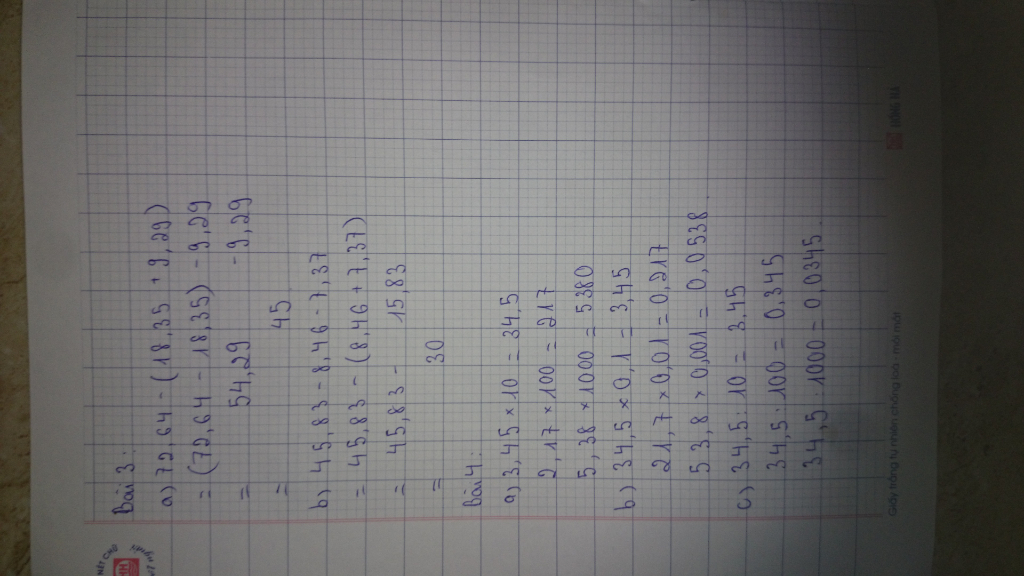 Bài 3:
a) 72,64 - (18,35 + 9,29)
= (72,64 - 18,35) - 9,29
= 54,29 - 9,29
= 45
b) 45,83 - 8,46 - 7,37
= 45,83 - (8,46 + 7,37)
= 45,83 - 15,83
= 30
Bài 4:
a) 3,45 × 10 = 34,5
2,17 × 100 = 217
5,38 × 1000 = 5380
b) 34,5 × 0,1 = 3,45
21,7 × 0,01 = 0,217
53,8 × 0,001 = 0,0538
c) 34,5 : 10 = 3,45
34,5 : 100 = 0,345
34,5 : 1000 = 0,0345
Giấy trắng tự nhiên chống loá - mỏi mắt